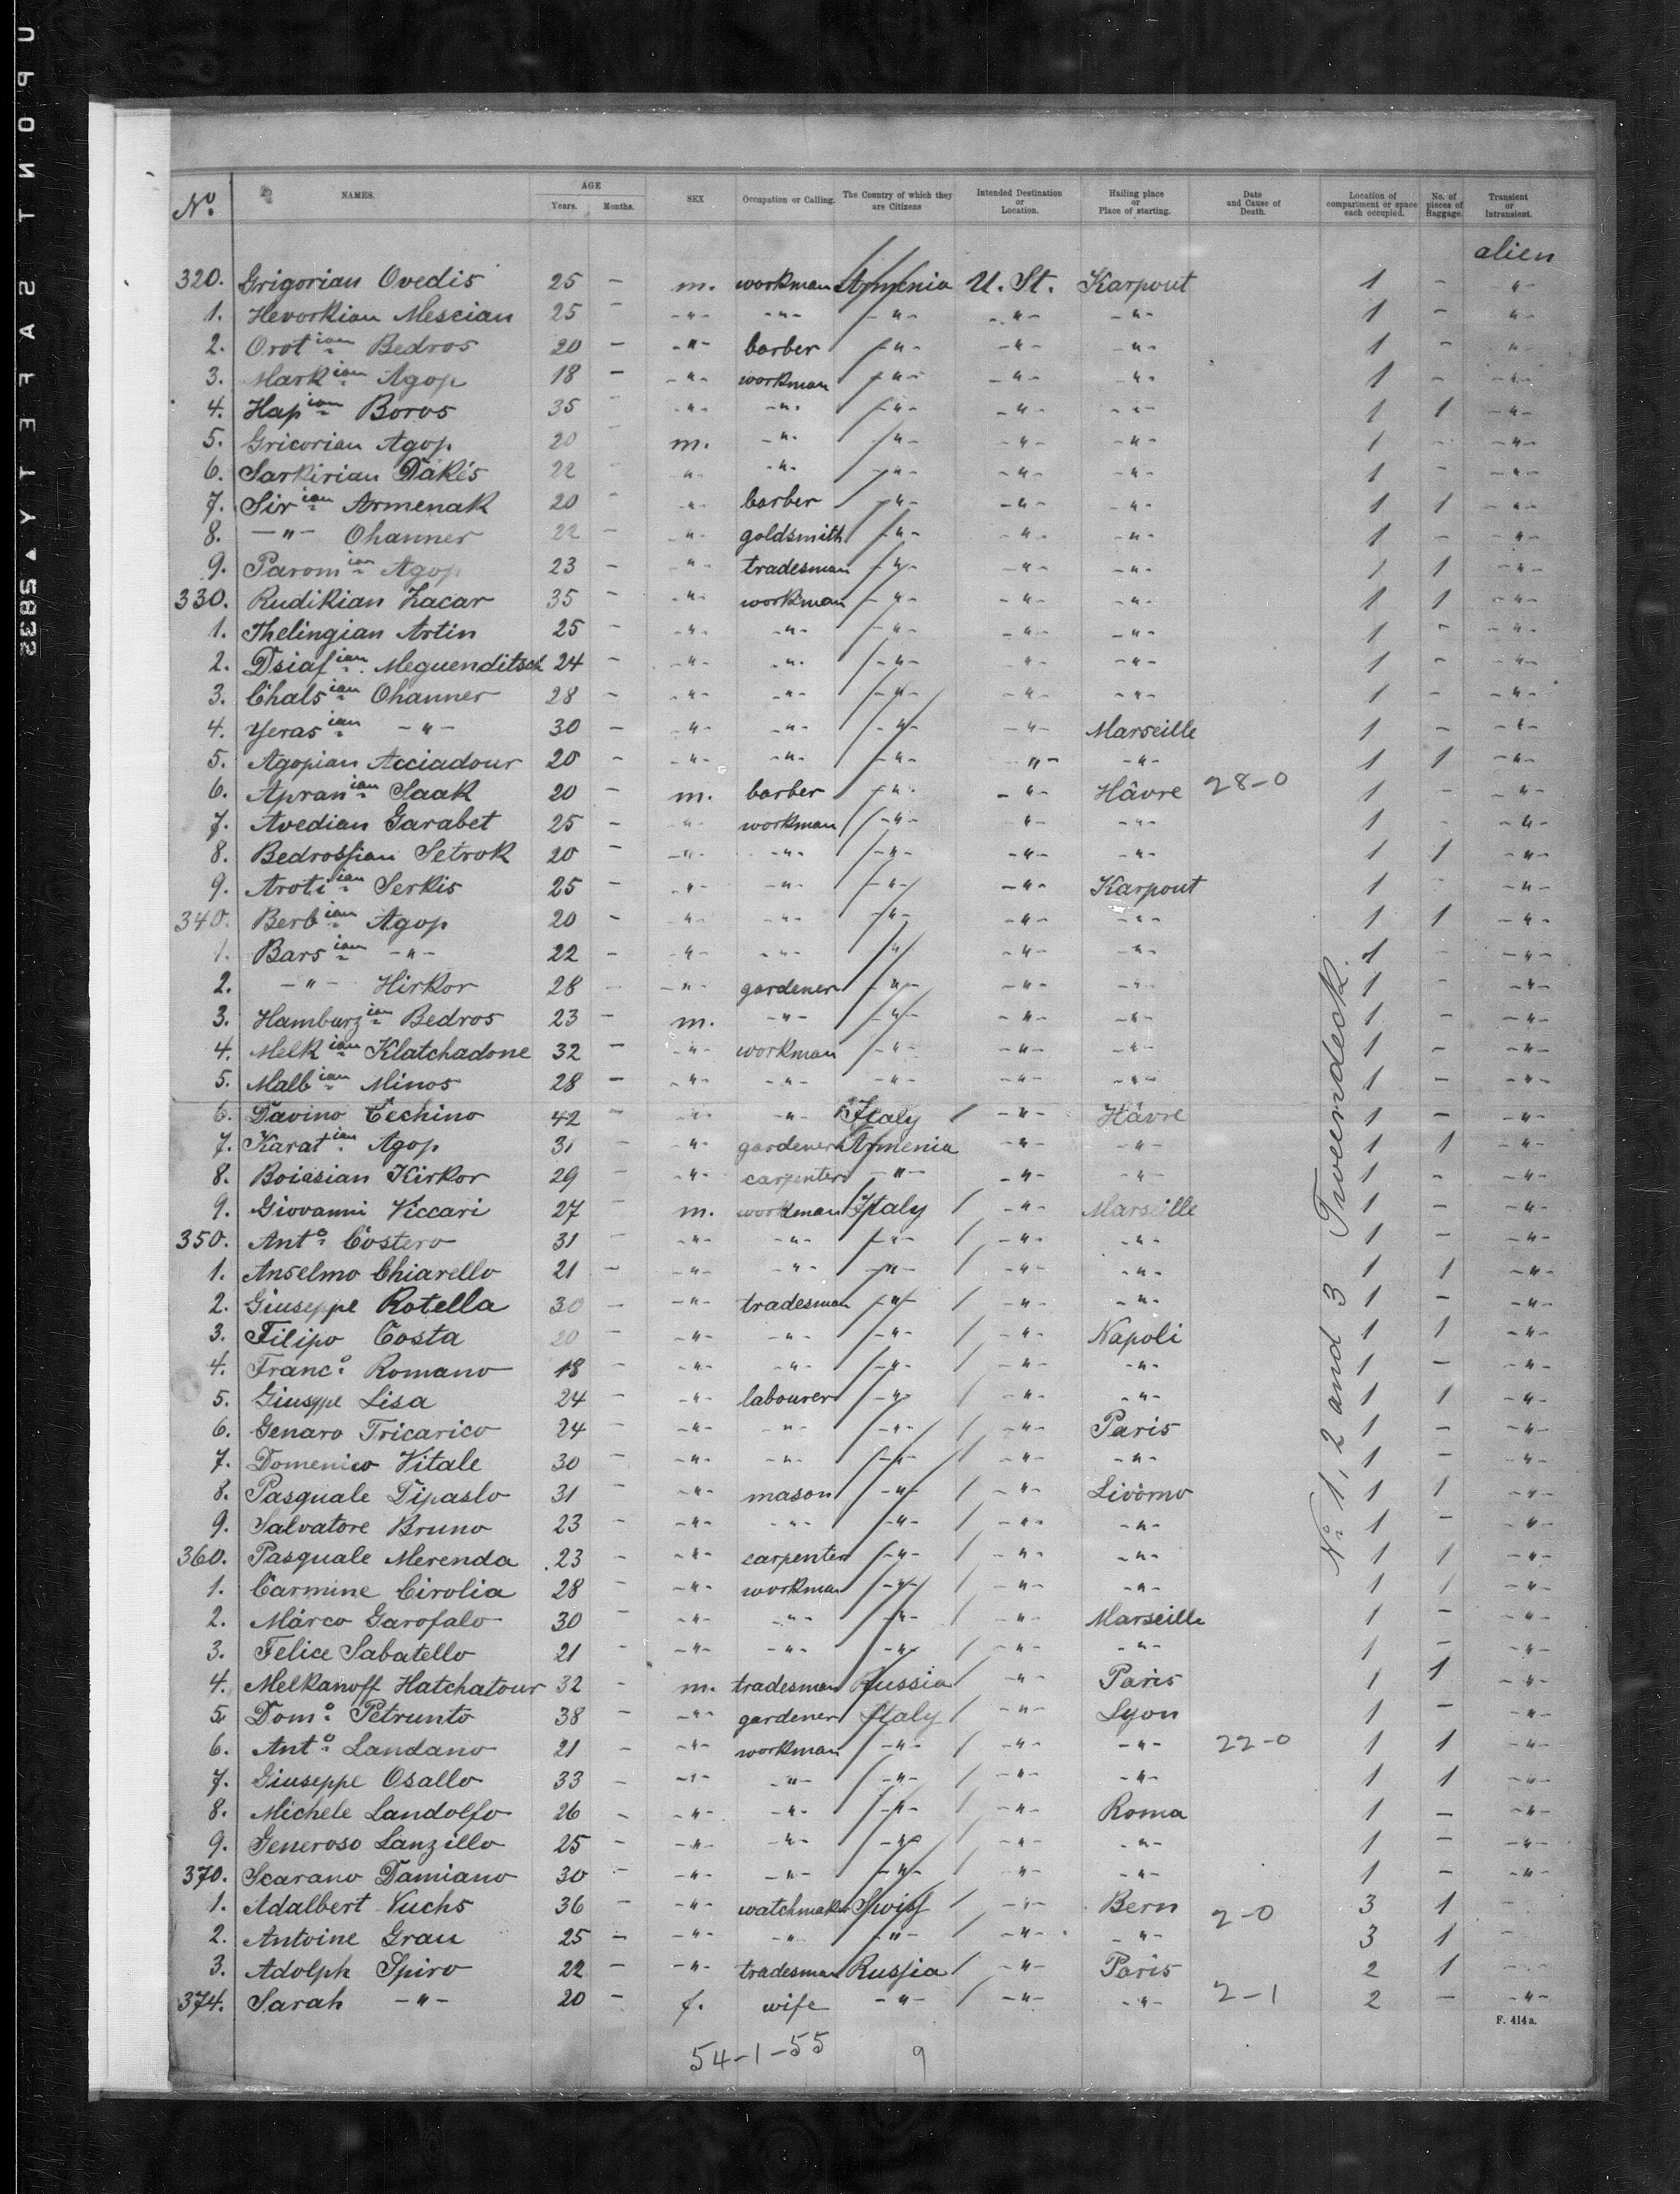 UPON TSAFETY▲5832
No. NAMES. AGE Years. Months. SEX Occupation or Calling. The Country of which they are Citizens Intended Destination or Location. Hailing place or Place of starting. Date and Cause of Death. Location of compartment or space each occupied. No. of pieces of Baggage. Transient or Intransient.
alien
320. Grigorian Ovedis 25 - m. workman Armenia U. St. Karpout 1 - -"-
1. Hevorkian Mescian 25 - -"- -"- -"- -"- -"- 1 - -"-
2. Orotian Bedros 20 - -"- barber -"- -"- -"- 1 - -"-
3. Markian Agop 18 - -"- workman -"- -"- -"- 1 - -"-
4. Hapian Boros 35 - -"- -"- -"- -"- -"- 1 1 -"-
5. Gricorian Agop 20 - m. -"- -"- -"- -"- 1 - -"-
6. Sarkirian Dakés 22 - -"- -"- -"- -"- -"- 1 - -"-
7. Sirian Armenak 20 - -"- barber -"- -"- -"- 1 1 -"-
8. -"- Ohanner 22 - -"- goldsmith -"- -"- -"- 1 - -"-
9. Paromian Agop 23 - -"- tradesman -"- -"- -"- 1 1 -"-
330. Rudikian Zacar 35 - -"- workman -"- -"- -"- 1 1 -"-
1. Thelingian Artin 25 - -"- -"- -"- -"- -"- 1 - -"-
2. Dsiafian Meguenditsch 24 - -"- -"- -"- -"- -"- 1 - -"-
3. Chalsian Ohanner 28 - -"- -"- -"- -"- -"- 1 - -"-
4. Yerasian -"- 30 - -"- -"- -"- -"- Marseille 1 - -"-
5. Agopian Acciadour 20 - -"- -"- -"- -"- -"- 1 1 -"-
6. Apranian Saak 20 - m. barber -"- -"- Hâvre 28-0 1 - -"-
7. Avedian Garabet 25 - -"- workman -"- -"- -"- 1 - -"-
8. Bedrossian Setrok 20 - -"- -"- -"- -"- -"- 1 1 -"-
9. Arotiian Serkis 25 - -"- -"- -"- -"- Karpout 1 - -"-
340. Berbian Agop 20 - -"- -"- -"- -"- -"- 1 1 -"-
1. Barsian -"- 22 - -"- -"- -"- -"- -"- 1 - -"-
2. -"- Hirkor 28 - -"- gardener -"- -"- -"- 1 - -"-
3. Hamburzian Bedros 23 - m. -"- -"- -"- -"- 1 - -"-
4. Melkian Klatchadone 32 - -"- workman -"- -"- -"- 1 - -"-
5. Malbian Minos 28 - -"- -"- -"- -"- -"- 1 - -"-
6. Davino Cechino 42 - -"- -"- Italy / -"- Hâvre 1 - -"-
7. Karatian Agop 31 - -"- gardener Armenia -"- -"- 1 1 -"-
8. Boiasian Kirkor 29 - -"- carpenter -"- -"- -"- 1 - -"-
9. Giovanni Viccari 27 - m. workman Italy / -"- Marseille 1 - -"-
350. Anto Costero 31 - -"- -"- -"- / -"- -"- 1 - -"-
1. Anselmo Chiarello 21 - -"- -"- -"- / -"- -"- 1 1 -"-
2. Giuseppe Rotella 30 - -"- tradesman -"- / -"- -"- 1 - -"-
3. Filipo Costa 20 - -"- -"- -"- / -"- Napoli 1 1 -"-
4. Franco Romano 18 - -"- -"- -"- / -"- -"- 1 - -"-
5. Giusppe Lisa 24 - -"- labourer -"- / -"- -"- 1 1 -"-
6. Genaro Tricarico 24 - -"- -"- -"- / -"- Paris 1 - -"-
7. Domenico Vitale 30 - -"- -"- -"- / -"- -"- 1 - -"-
8. Pasquale Dipaslo 31 - -"- mason -"- / -"- Livorno 1 1 -"-
9. Salvatore Bruno 23 - -"- -"- -"- / -"- -"- 1 - -"-
360. Pasquale Merenda 23 - -"- carpenter -"- / -"- -"- 1 1 -"-
1. Carmine Cirolia 28 - -"- workman -"- / -"- -"- 1 1 -"-
2. Marco Garofalo 30 - -"- -"- -"- / -"- Marseille 1 - -"-
3. Felice Sabatello 21 - -"- -"- -"- / -"- -"- 1 - -"-
4. Melkanoff Hatchatour 32 - m. tradesman Russia / -"- Paris 1 1 -"-
5. Domo Petrunto 38 - -"- gardener Italy / -"- Lyon 1 - -"-
6. Anto Landano 21 - -"- workman -"- / -"- -"- 22-0 1 1 -"-
7. Giuseppe Osallo 33 - -"- -"- -"- / -"- -"- 1 1 -"-
8. Michele Landolfo 26 - -"- -"- -"- / -"- Roma 1 - -"-
9. Generoso Lanzillo 25 - -"- -"- -"- / -"- -"- 1 - -"-
370. Scarano Damiano 30 - -"- -"- -"- / -"- -"- 1 - -"-
1. Adalbert Vuchs 36 - -"- watchmaker Swiss / -"- Bern 2-0 3 1 -
2. Antoine Grau 25 - -"- -"- -"- / -"- -"- 3 1 -
3. Adolph Spiro 22 - -"- tradesman Russia / -"- Paris 2 1 -"-
374. Sarah -"- 20 - f. wife -"- / -"- -"- 2-1 2 - -"-
No 1, 2 and 3 Tweendeck.
F. 414a.
54-1-55 9